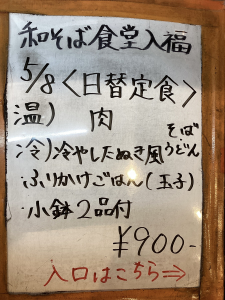 和そば食堂入福
5/8<日替定食>
温) 肉
冷)冷やしたぬき風 そば うどん
ふりかけごはん(玉子)
小鉢2品付
¥900-
入口はこちら⇒